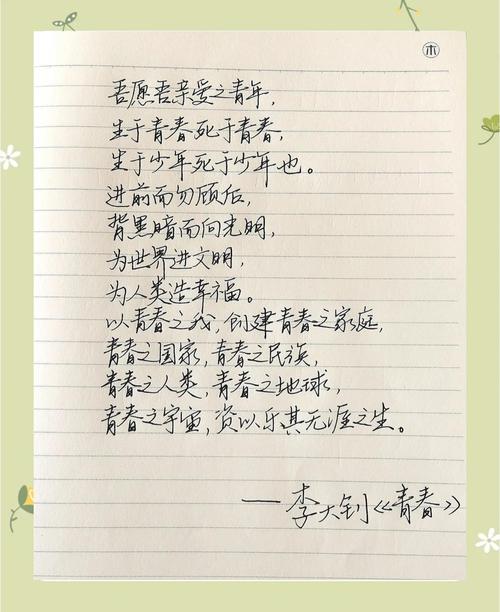 木
吾愿吾亲爱之青年,
生于青春死于青春,
生于少年死于少年也。
进前而勿顾后,
背黑暗而向光明,
为世界进文明,
为人类造幸福。
以青春之我,创建青春之家庭,
青春之国家,青春之民族,
青春之人类,青春之地球,
青春之宇宙,资以乐其无涯之生。
——李大钊《青春》